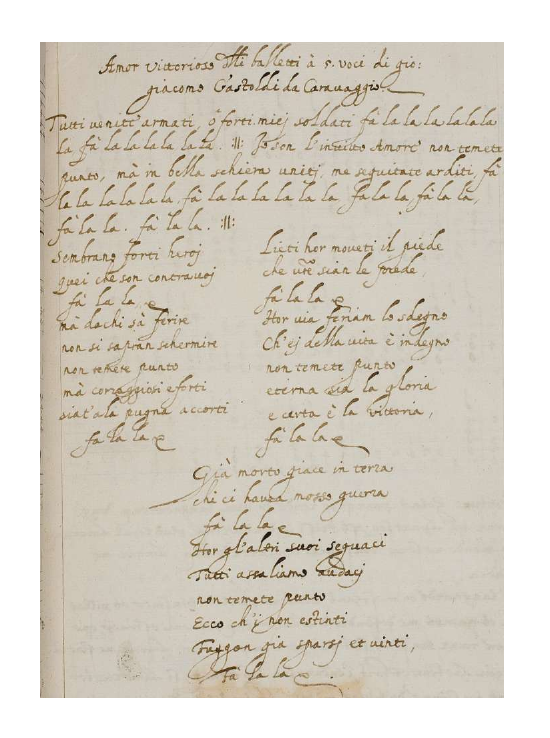 Amor Vittorioso Alli balletti à 5. voci di gio:
giacomo Gastoldi da Caravaggio.
Tutti venite armati, ò forti miej soldati fà la la la la la la
la fà la la la la la la. :||: Jo son l'inuitto Amore non temete
punto, mà in bella schiera unitj, me seguitate arditi, fà
la la la la la la, fà la la la la la la la, fà la la, fà la la,
fà la la. fà la la. :||:
Sembrano forti heroj
Quei che son contra voj
fà la la,
mà da chi sà ferire
non si sapran schermire
non temete punto
mà coraggiosi e forti
siat'a la pugna accorti
fa la la
Lieti hor moveti il piede
che vr̃e sian le prede,
fà la la
Hor via feriam lo sdegno
Ch'ej della vita è indegno
non temete punto
eterna sia la gloria
e certa è la vittoria,
fà la la
Già morto giace in terra
chi ci havea mosso guerra
fà la la
Hor gl'altri suoi seguaci
Tutti assaliamo audacj
non temete punto
Ecco ch'i non estinti
Fuggon gia sparsj et vinti,
Fà la la